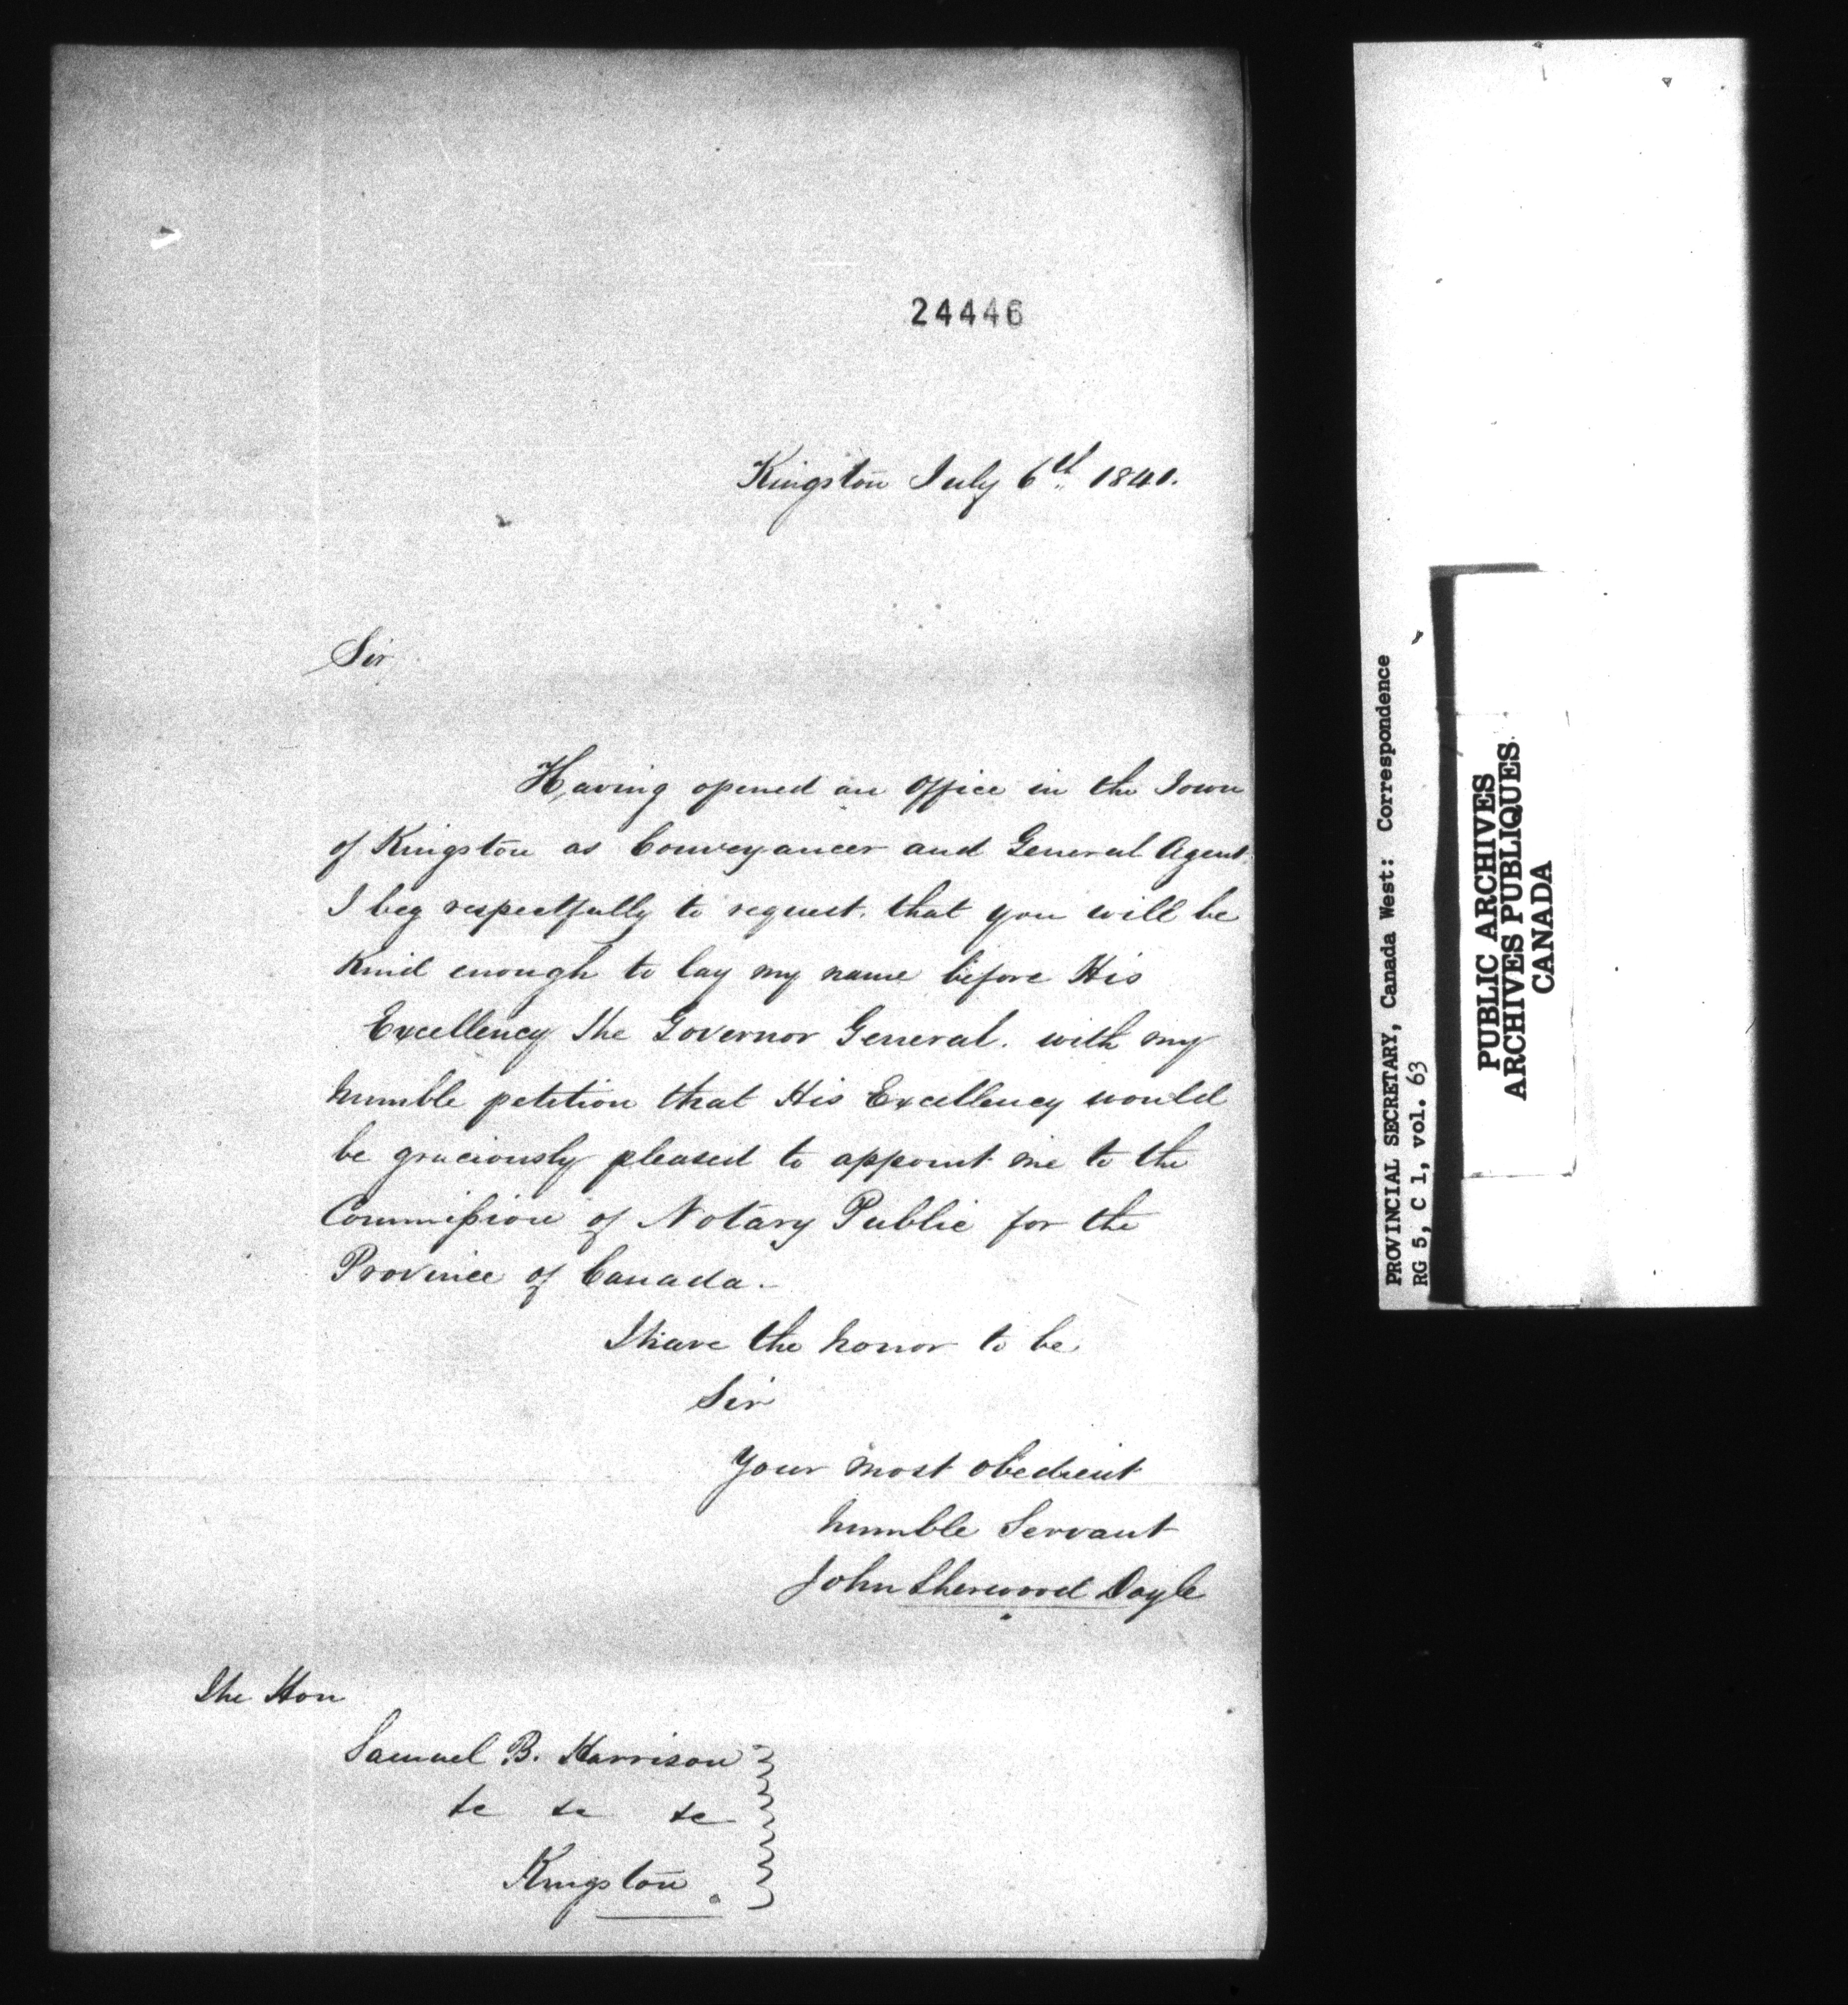 24446
Kingston July 6th 1841.
Sir
Having opened an office in the Town
of Kingston as Conveyancer and General Agent.
I beg respectfully to request. that you will be
kind enough to lay my name before His
Excellency The Governor General. with my
humble petition that His Excellency would
be graciously pleased to appoint me to the
Commission of Notary Public for the
Province of Canada.
I have the honor to be
Sir
Your most obedient
humble Servant
John Sherwood Doyle
The Hon
Samuel B. Harrison
&c &c &c
Kingston.
PROVINCIAL SECRETARY, Canada West: Correspondence
RG 5, C 1, vol. 63
PUBLIC ARCHIVES
ARCHIVES PUBLIQUES
CANADA